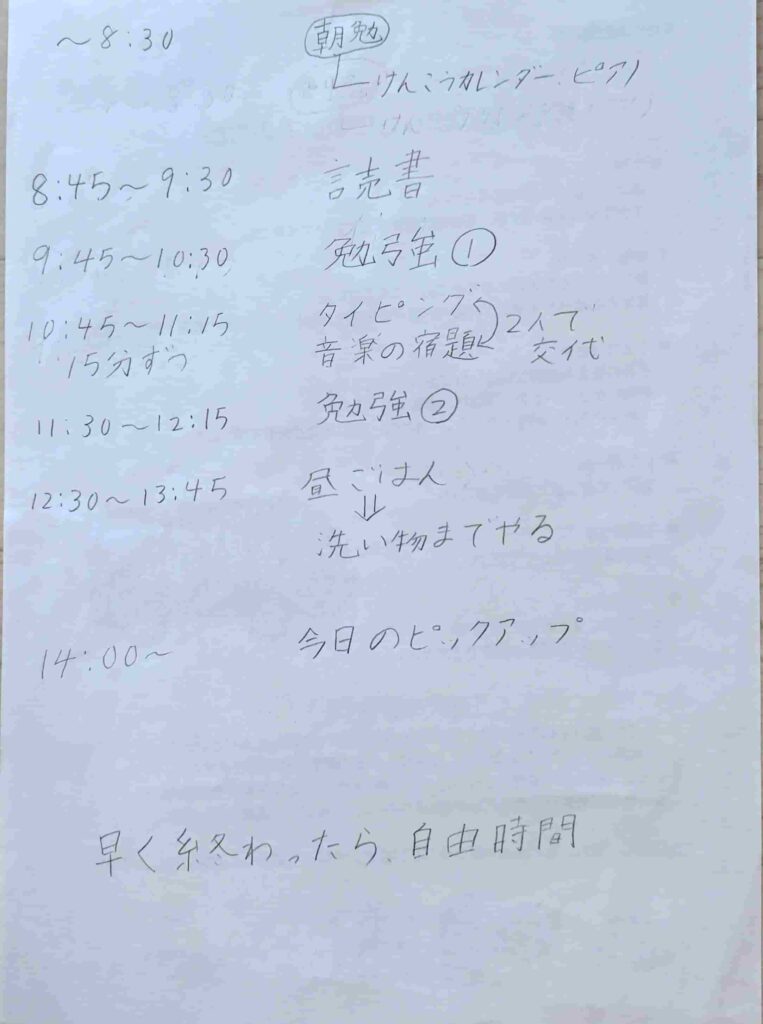 ～8:30 朝勉
けんこうカレンダー、ピアノ
8:45～9:30 読書
9:45～10:30 勉強①
10:45～11:15 タイピング
15分ずつ 音楽の宿題 2人で
交代
11:30～12:15 勉強②
12:30～13:45 昼ごはん
⇓
洗い物までやる
14:00～ 今日のピックアップ
早く終わったら、自由時間